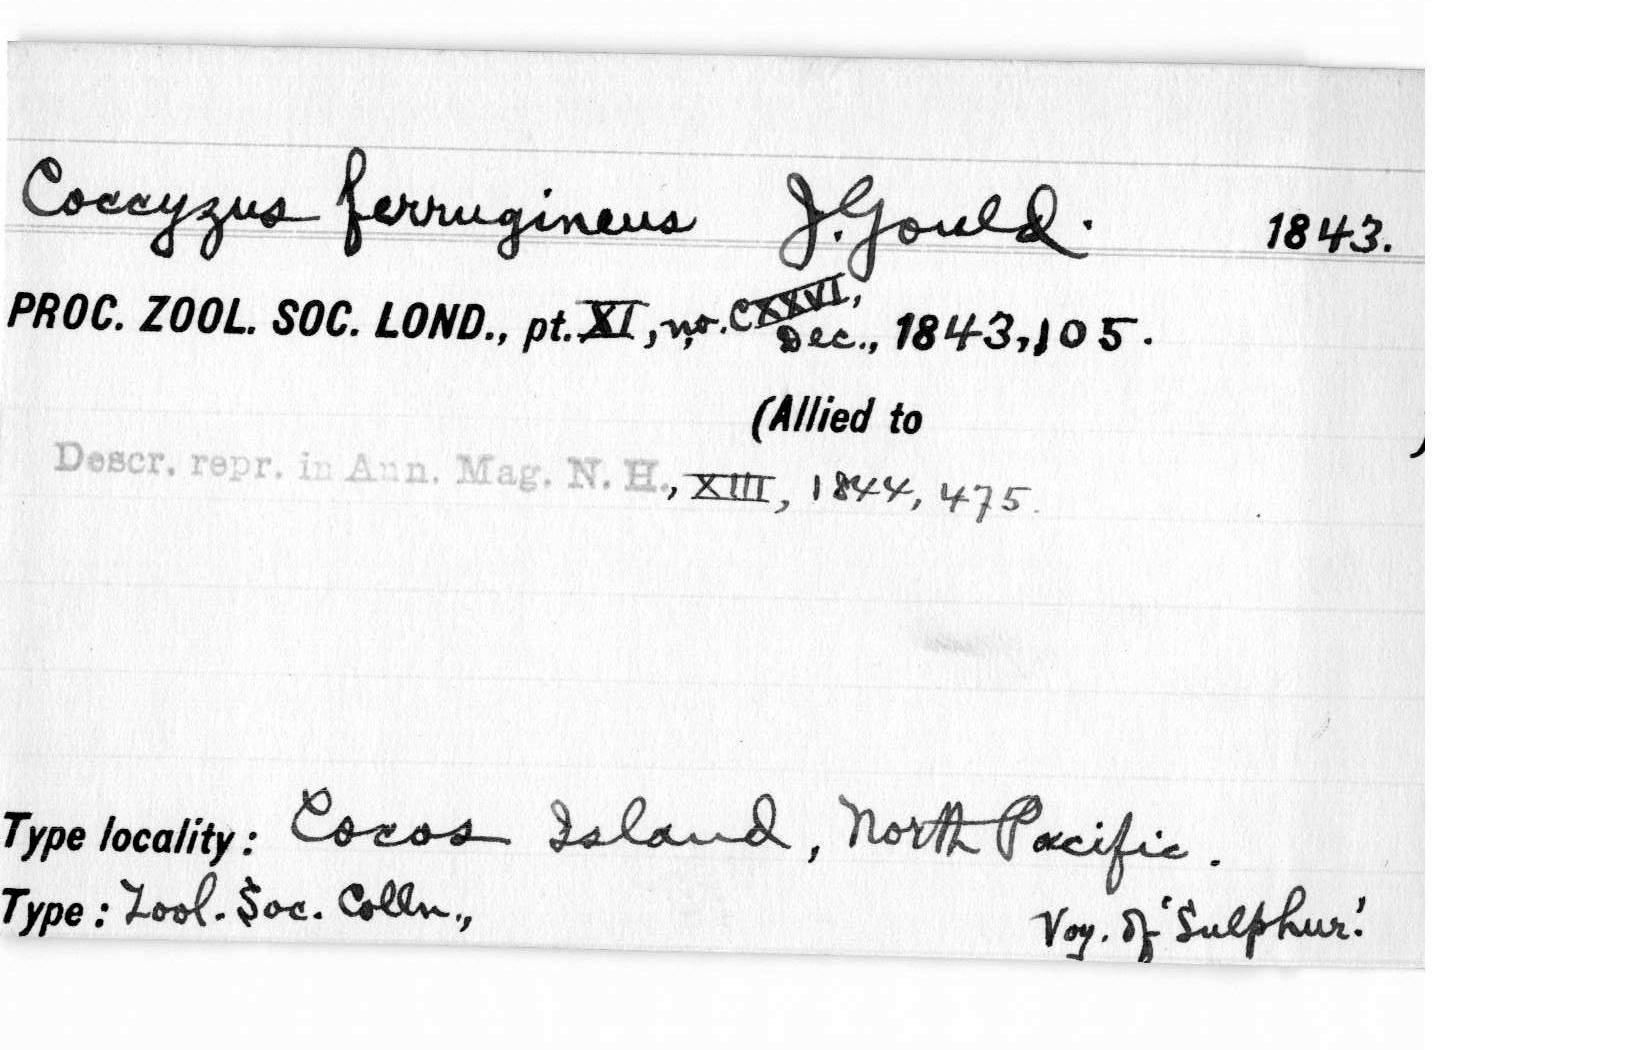 Coccyzus ferrugineus J. Gould. 1843.
PROC. ZOOL. SOC. LOND., pt. XI, no. CXXVI, Dec., 1843, 105.
(Allied to )
Descr. repr. in Ann. Mag. N. H., XIII, 1844, 475.
Type locality: Cocos Island, North Pacific.
Type: Zool. Soc. Colln., Voy. of 'Sulphur'.